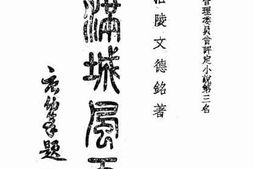 管理委員會評定小說第三名
涪陵文德銘著
滿城風雨
題